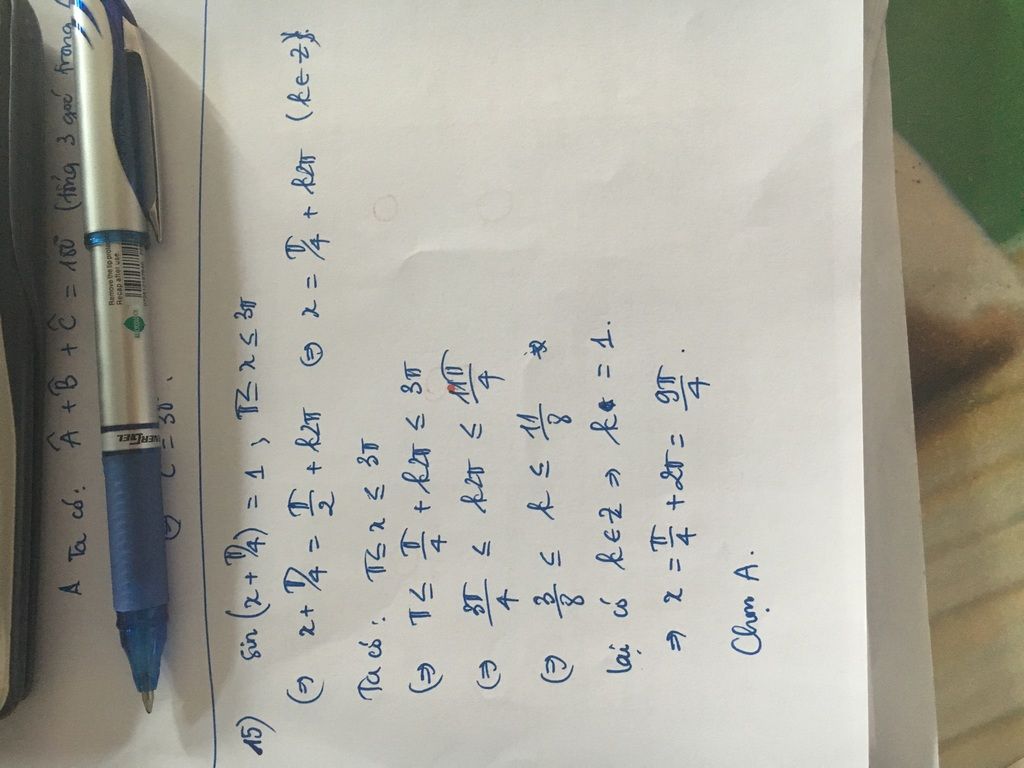 A Ta có: Â + B̂ + Ĉ = 180° (tổng 3 góc trong
(=) C = 30°.
15) sin(x + π/4) = 1, π ≤ x ≤ 3π
(=) x + π/4 = π/2 + k2π (=) x = π/4 + k2π (k ∈ Z).
Ta có: π ≤ x ≤ 3π
(=) π ≤ π/4 + k2π ≤ 3π
(=) 3π/4 ≤ k2π ≤ 11π/4
(=) 3/8 ≤ k ≤ 11/8
lại có k ∈ Z => k = 1.
=> x = π/4 + 2π = 9π/4.
Chọn A.
Remove the tip
Recap after use
ENERGEL